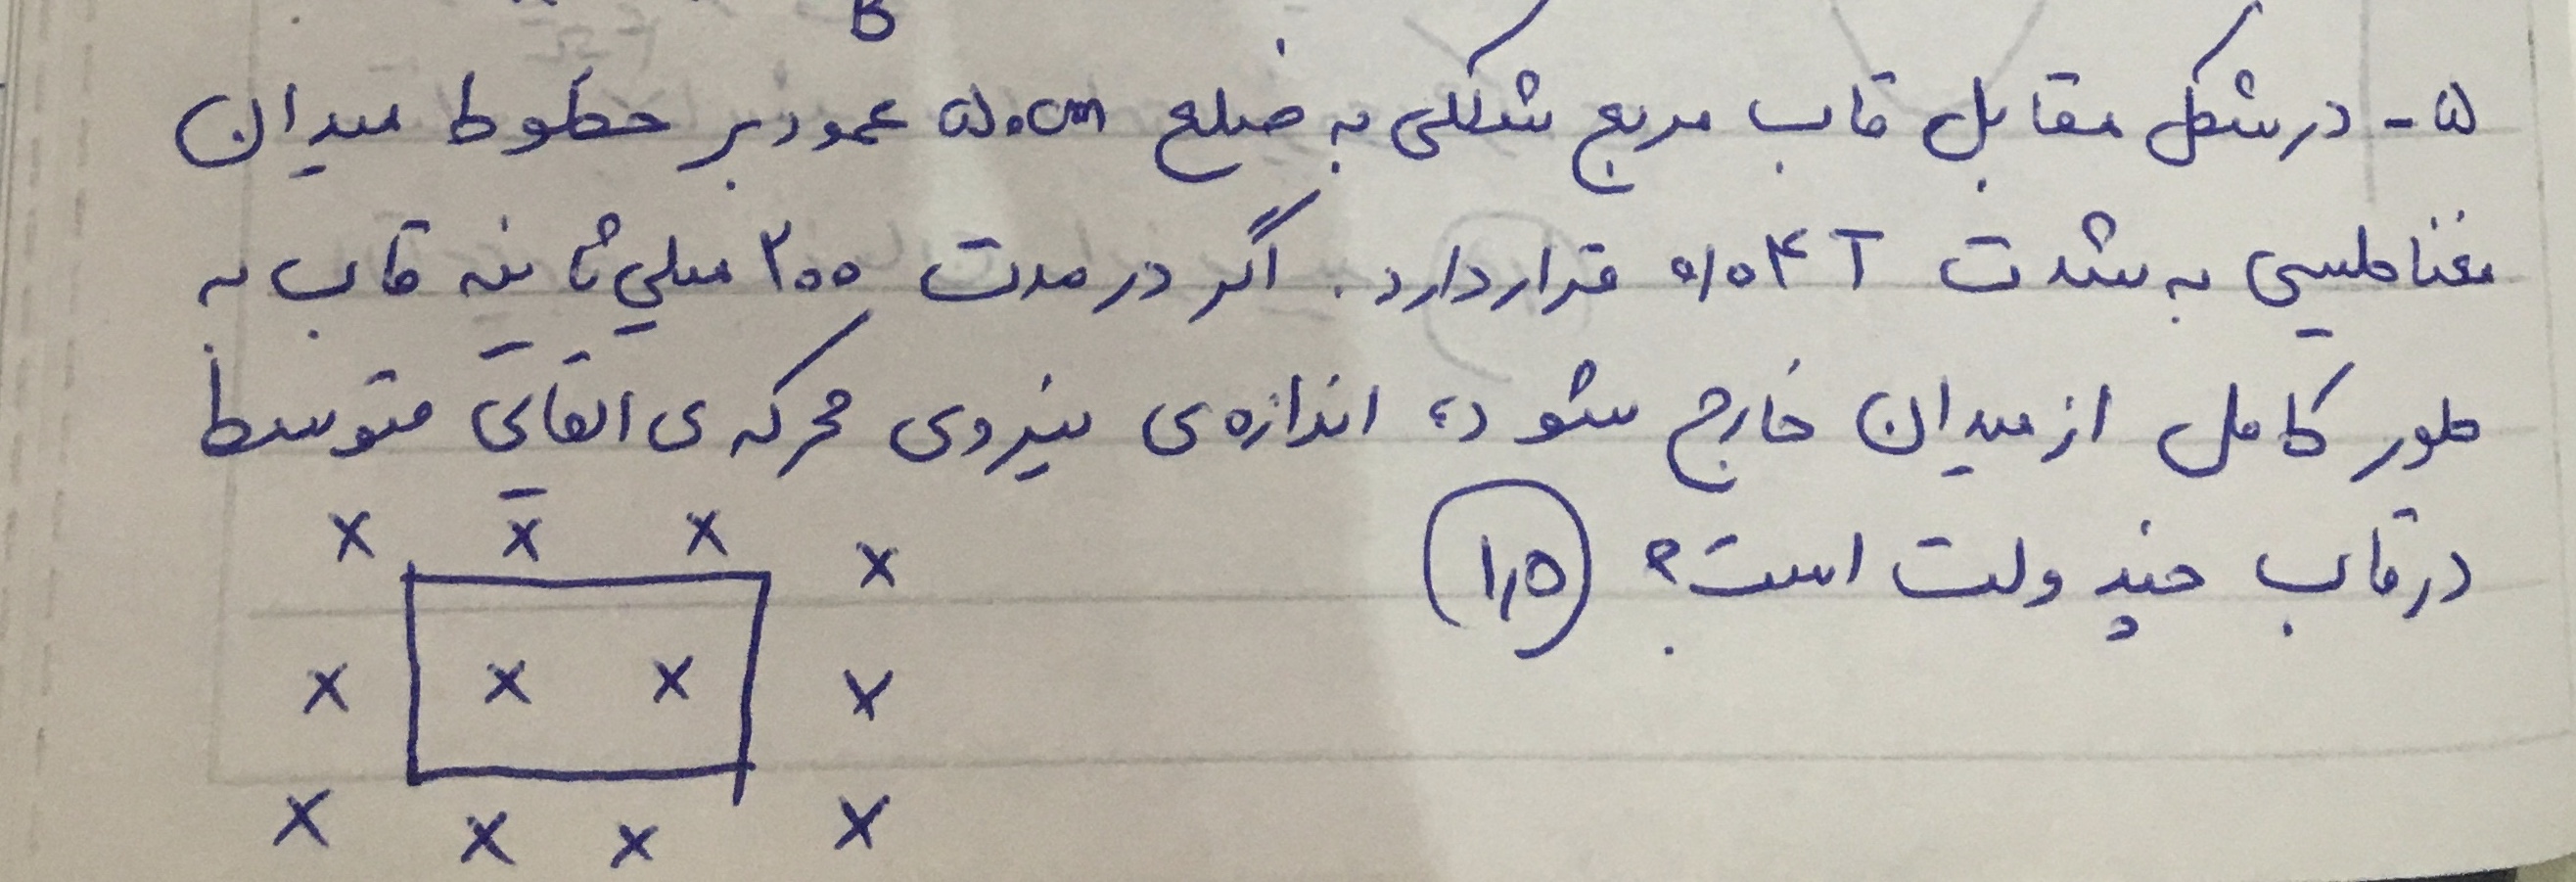 B
۵- در شکل مقابل قاب مربع شکلی به ضلع ۵۰cm عمود بر خطوط میدان
مغناطیسی به شدت ۰/۰۴ T قرار دارد. اگر در مدت ۲۰۰ میلی ثانیه قاب به
طور کامل از میدان خارج شود، اندازه ی نیروی محرکه ی القایی متوسط
در قاب چند ولت است؟ ۱,۵
x x x x
x x x x
x x x x